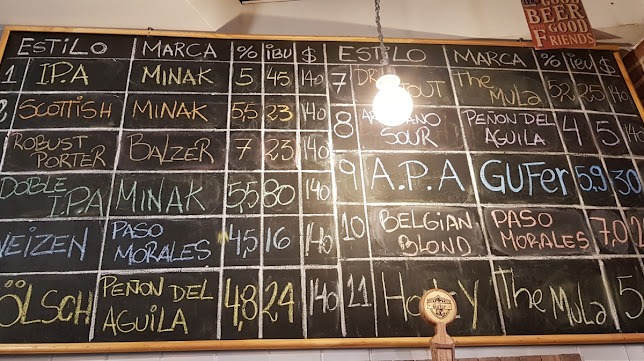 ESTILO MARCA % IBU $
1 I.P.A MINAK 5 45 140
SCOTTISH MINAK 5,5 23 140
ROBUST PORTER BALZER 7 23 140
DOBLE I.P.A MINAK 5,5 80 140
WEIZEN PASO MORALES 4,5 16 140
KÖLSCH PEÑON DEL AGUILA 4,8 24 140
ESTILO MARCA % IBU $
7 DRY STOUT THE MULA 5,2 25 140
8 SOUR PEÑON DEL AGUILA 4 5 14
9 A.P.A GUFER 5,9 30
10 BELGIAN BLOND PASO MORALES 7,0
11 THE MULA 5
GOOD
BEER
GOOD
FRIENDS